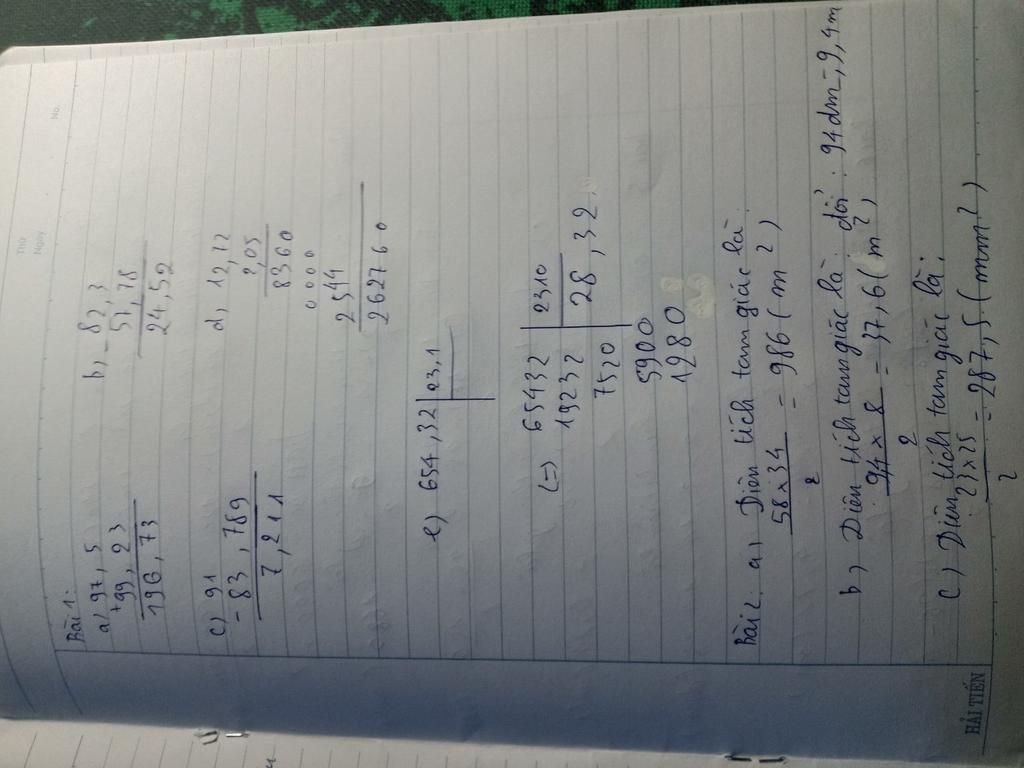 Thứ
Ngày
No.
Bài 1:
a) 97, 5
+ 99, 23
196, 73
b, - 82, 3
57, 78
24, 52
c) 91
- 83, 789
7, 211
d, 12, 12
2,05
8360
0000
2544
262760
e) 654, 32 23, 1
(=) 65432 2310
19232 28, 32
7520
5900
1280
Bài 2: a) Diện tích tam giác là
58 x 34
2
= 986 (m2)
b) Diện tích tam giác là: đổi: 94dm = 9,4m
94 x 8
2
= 37,6 (m2)
c) Diện tích tam giác là:
23 x 25
2
= 287,5 (mm2)
HẢI TIẾN